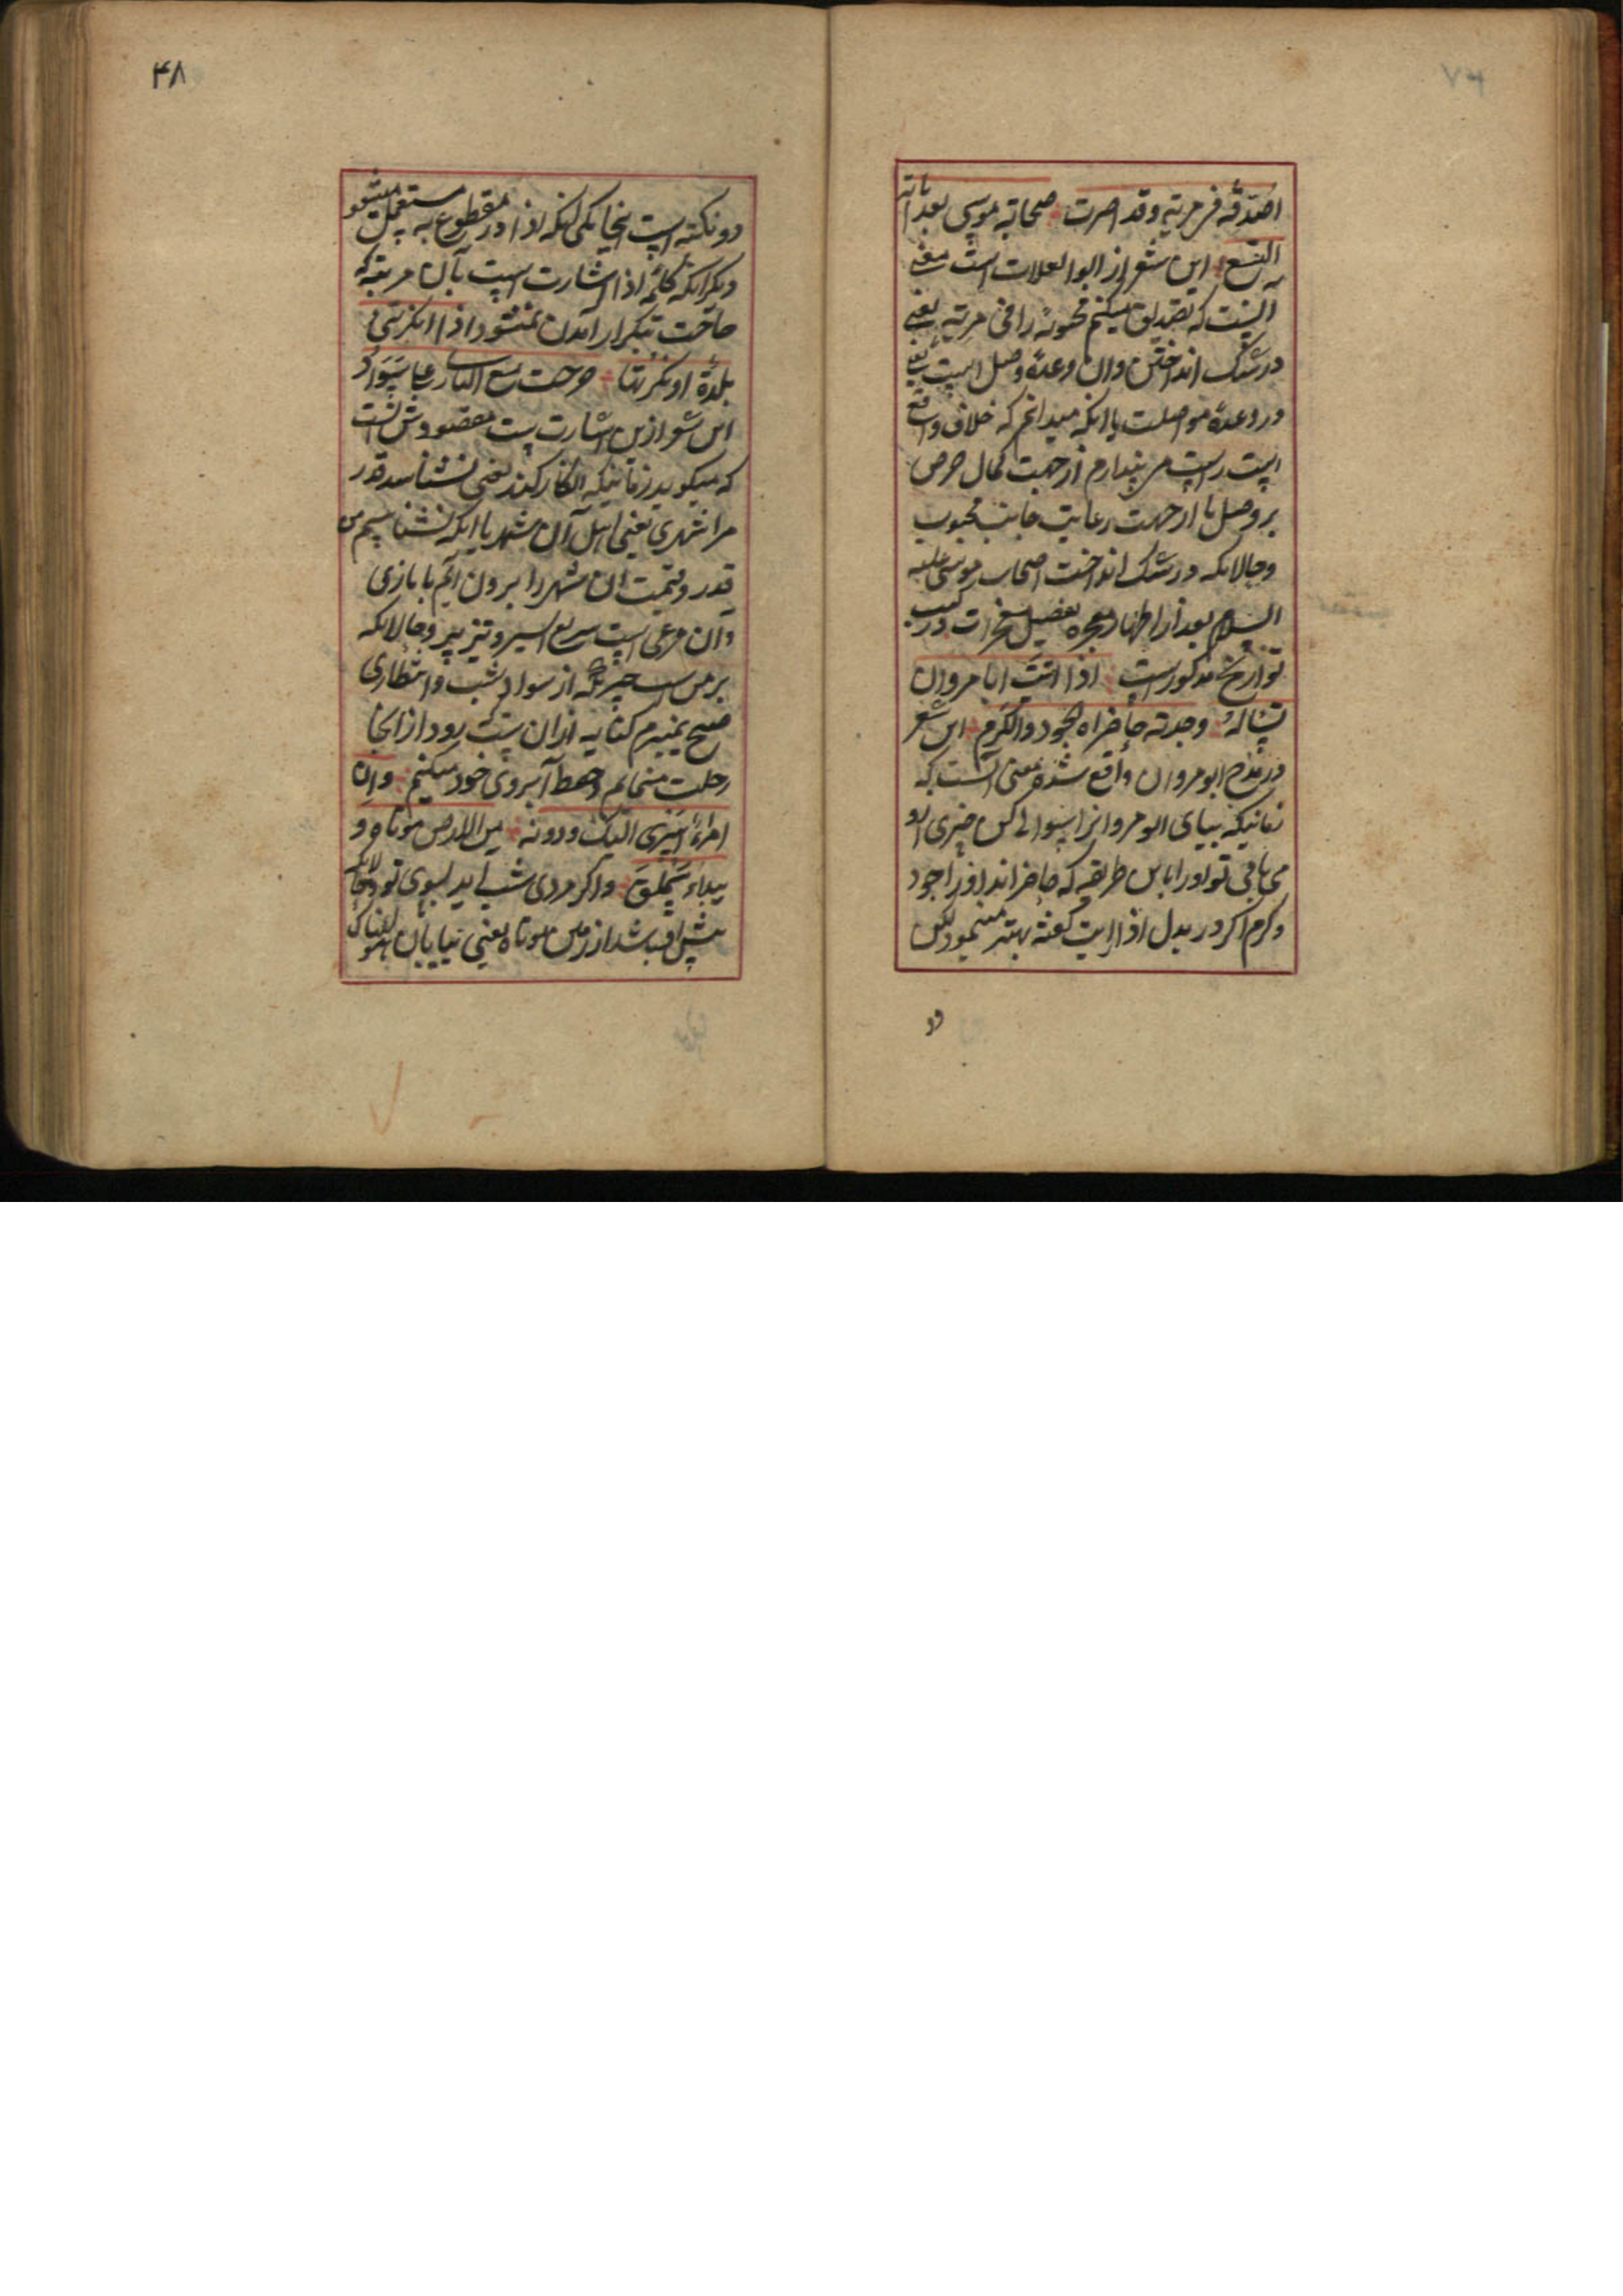 اصدقه فی مریه وقد امترت صحابة موسی بعد آیاته
التسع این شعر از ابوالعلاست معنی
اینست که تصدیق میکنم محبوبه را فی مریه یعنی
در شک انداختن وان وعدهٔ وصل است یعنی
در وعدهٔ مواصلت با انکه میدانم که خلاف واقع
است راست می پندارم از جهت کمال حرص
بر وصل یا از جهت رعایت جانب محبوب
وحالانکه در شک انداخت اصحاب موسی علیه
السلام بعد از اظهار معجزه تفصیل معجزات در کتب
تواریخ مذکورست اذا اتیت ابا مروان
تساله وجدته حاضراه الجود والکرم این شعر
در مدح ابو مروان واقع شده معنی آنست که
زمانیکه بیای ابو مروانرا سوال کنی چیزی ازو
می یابی تو اورا باین طریقه که حاضرانند اورا جود
وکرم اگر در بدل اذا ان اتیت گفته بهتر مینمود لیکن
دو
۴۸
دو نکته است اینجا یکی انکه اذا در مقطوع به مستعمل میشود
دیگر انکه کلمه اذا اشارت است بآن مرتبه که
حاجت بتکرار آمدن نمیشود اذا انکرتنی
بلدة او نکرتها خرجت مع البازی علی سواد
این شعر از بن اشارت است مقصودش انست
که میگوید زمانیکه انکار کند یعنی نشناسد قدر
مرا شهری یعنی اهل آن شهر یا انکه نشناسیم من
قدر وقیمت ان شهر را برون آیم با بازی
وان مرغی است سریع السیر وتیز پر وحالانکه
بر من است چیزی که از سواد شب وانتظاری
صبح نمیبرم کنایه ازان است زود از انجا
رحلت مینمایم وحفظ آبروی خود میکنم وان
امرأ اسری الیک ودونه من الارض موماة و
بیداء سملق واگر مردی شب آید بسوی تو وحالانکه
پیش او باشد از زمین موماة یعنی بیابان هولناک